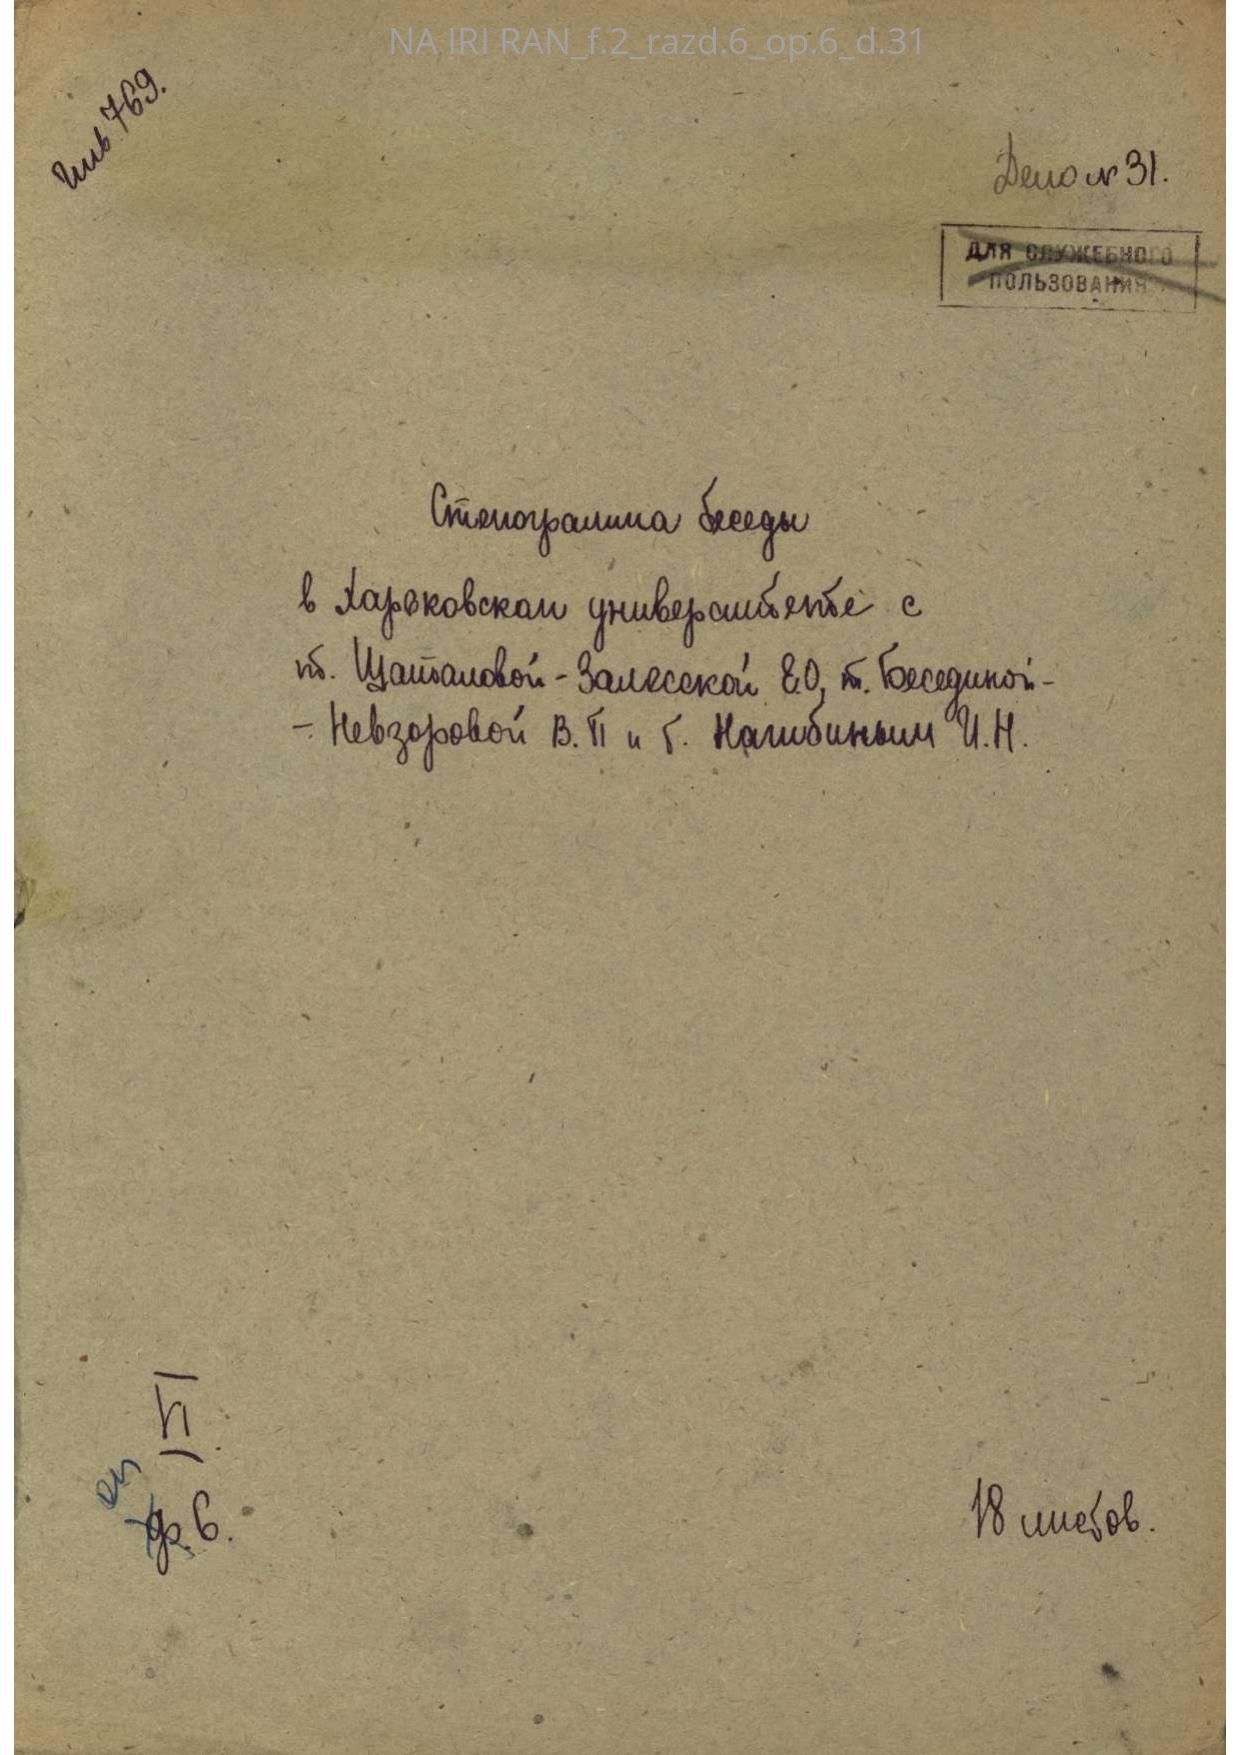 NA IRI RAN_f.2_razd.6_op.6_d.31
Инв 769.
Дело № 31.
ДЛЯ СЛУЖЕБНОГО
ПОЛЬЗОВАНИЯ
Стенограмма беседы
в Харьковском университете с
т. Шаталовой-Залесской Е.О, т. Бесединой-
- Невзоровой В.П и т. Нагибиным И.Н.
VI
оп
ф 6.
18 листов.